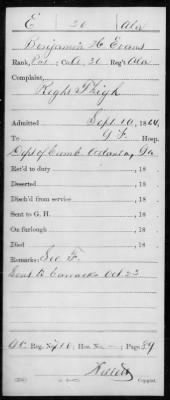 E 20 Ala
Benjamin H Evans
Rank, Pvt ; Co. A. 20 Reg't Ala
Complaint,
Right Thigh
Admitted Sept 10, 1864,
To G. F. Hosp.
Dept of Cumb Atlanta, Ga
Ret'd to duty , 18
Deserted , 18
Disch'd from service , 18
Sent to G. H. , 18
On furlough , 18
Died , 18
Remarks: Sec F.
Sent to Oct 23
Reg. No. 710 ; Hos. No. — ; Page 59
Copyist.